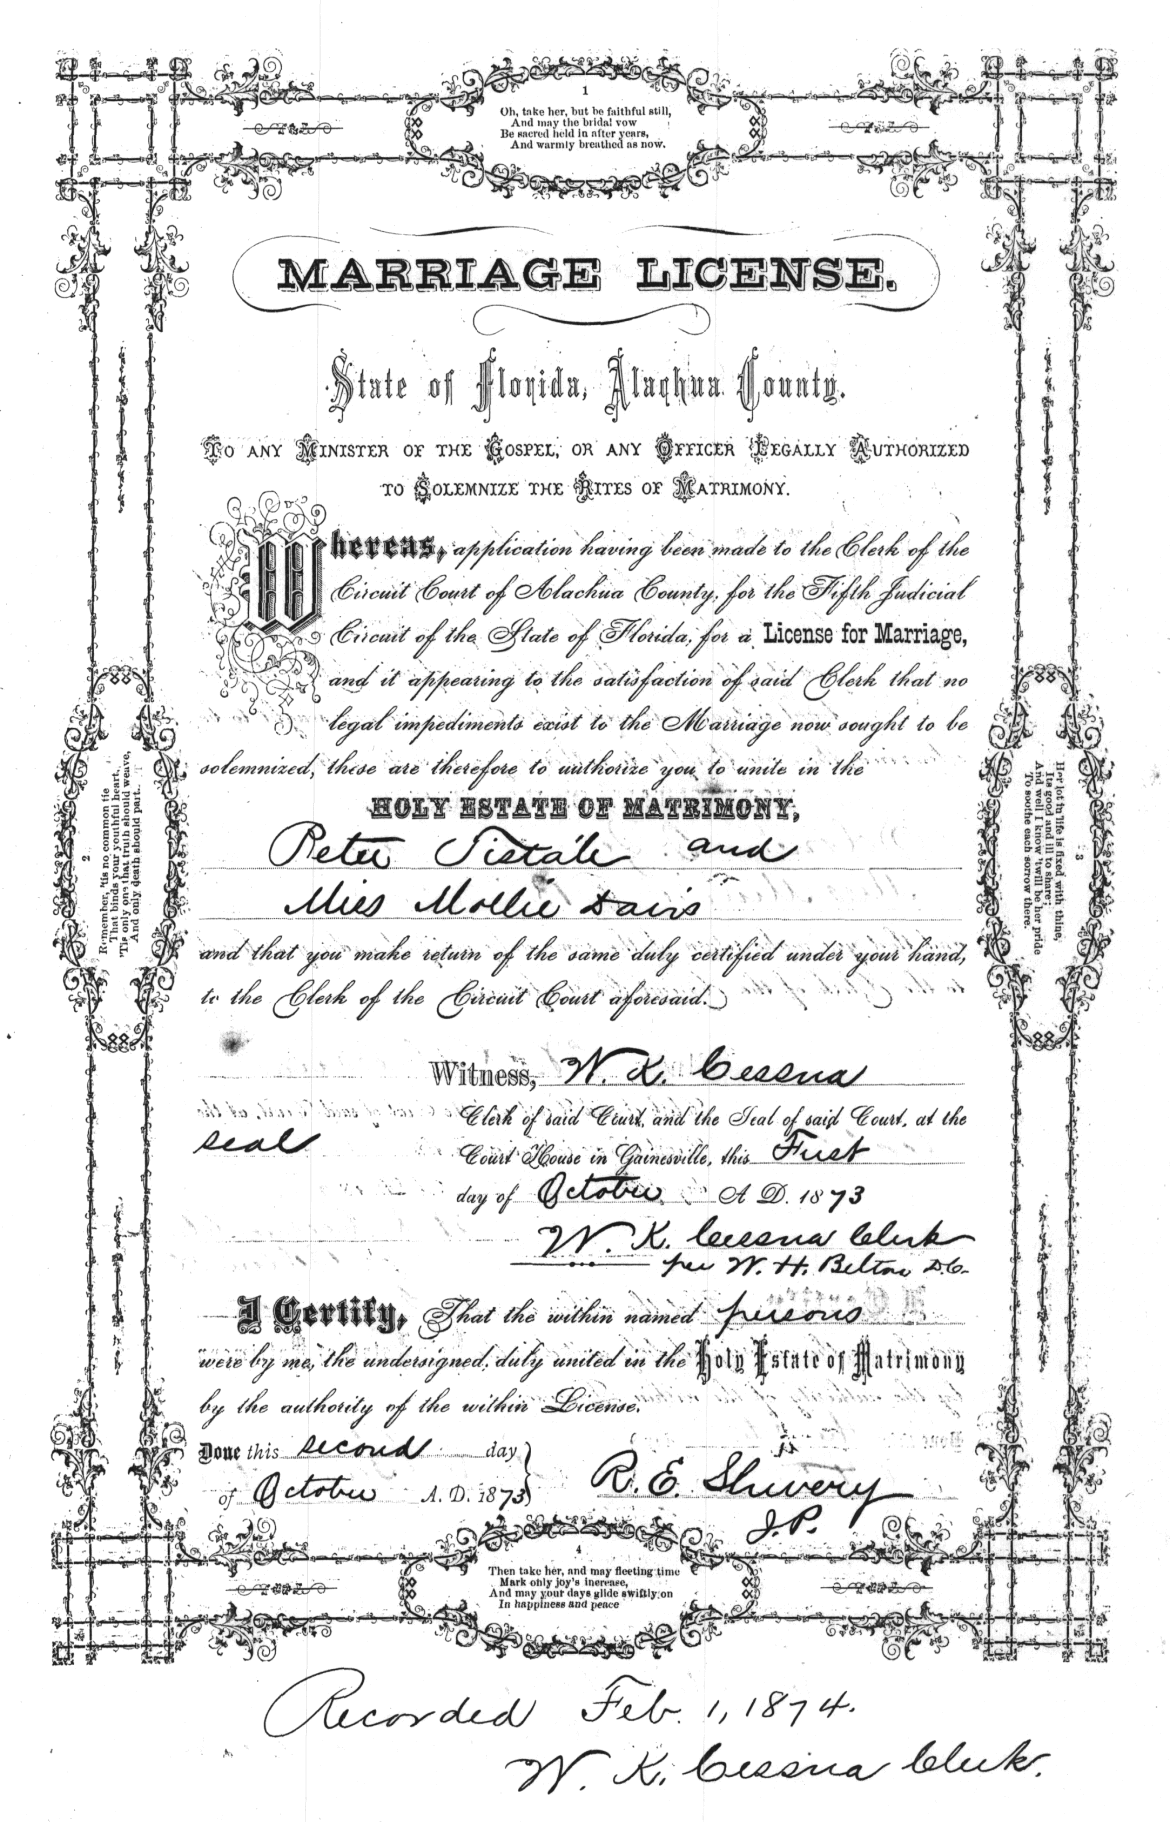 1
Oh, take her, but be faithful still,
And may the bridal vow
Be sacred held in after years,
And warmly breathed as now.
MARRIAGE LICENSE.
State of Florida, Alachua County.
To any Minister of the Gospel, or any Officer Legally Authorized
to Solemnize the Rites of Matrimony.
Whereas, application having been made to the Clerk of the
Circuit Court of Alachua County, for the Fifth Judicial
Circuit of the State of Florida, for a License for Marriage,
and it appearing to the satisfaction of said Clerk that no
legal impediments exist to the Marriage now sought to be
solemnized, these are therefore to authorize you to unite in the
HOLY ESTATE OF MATRIMONY,
Peter and
Miss Mollie Davis
and that you make return of the same duly certified under your hand,
to the Clerk of the Circuit Court aforesaid.
Witness, W. K. Cessna
Clerk of said Court, and the Seal of said Court, at the
seal
Court House in Gainesville, this First
day of October A D. 1873
W. K. Cessna Clerk
per W. H. Belton D.C.
I Certify, That the within named persons
were by me, the undersigned, duly united in the Holy Estate of Matrimony
by the authority of the within License.
Done this second day
of October A. D. 1873
R. E. Shivery
J.P.
2
Remember, 'tis no common tie
That binds your youthful heart,
'Tis only one that truth should weave,
And only death should part.
3
Her lot in life is fixed with thine,
Its good and ill to share;
And well I know 'twill be her pride
To soothe each sorrow there.
4
Then take her, and may fleeting time
Mark only joy's increase,
And may your days glide swiftly on
In happiness and peace
Recorded Feb. 1, 1874.
W. K. Cessna Clerk.